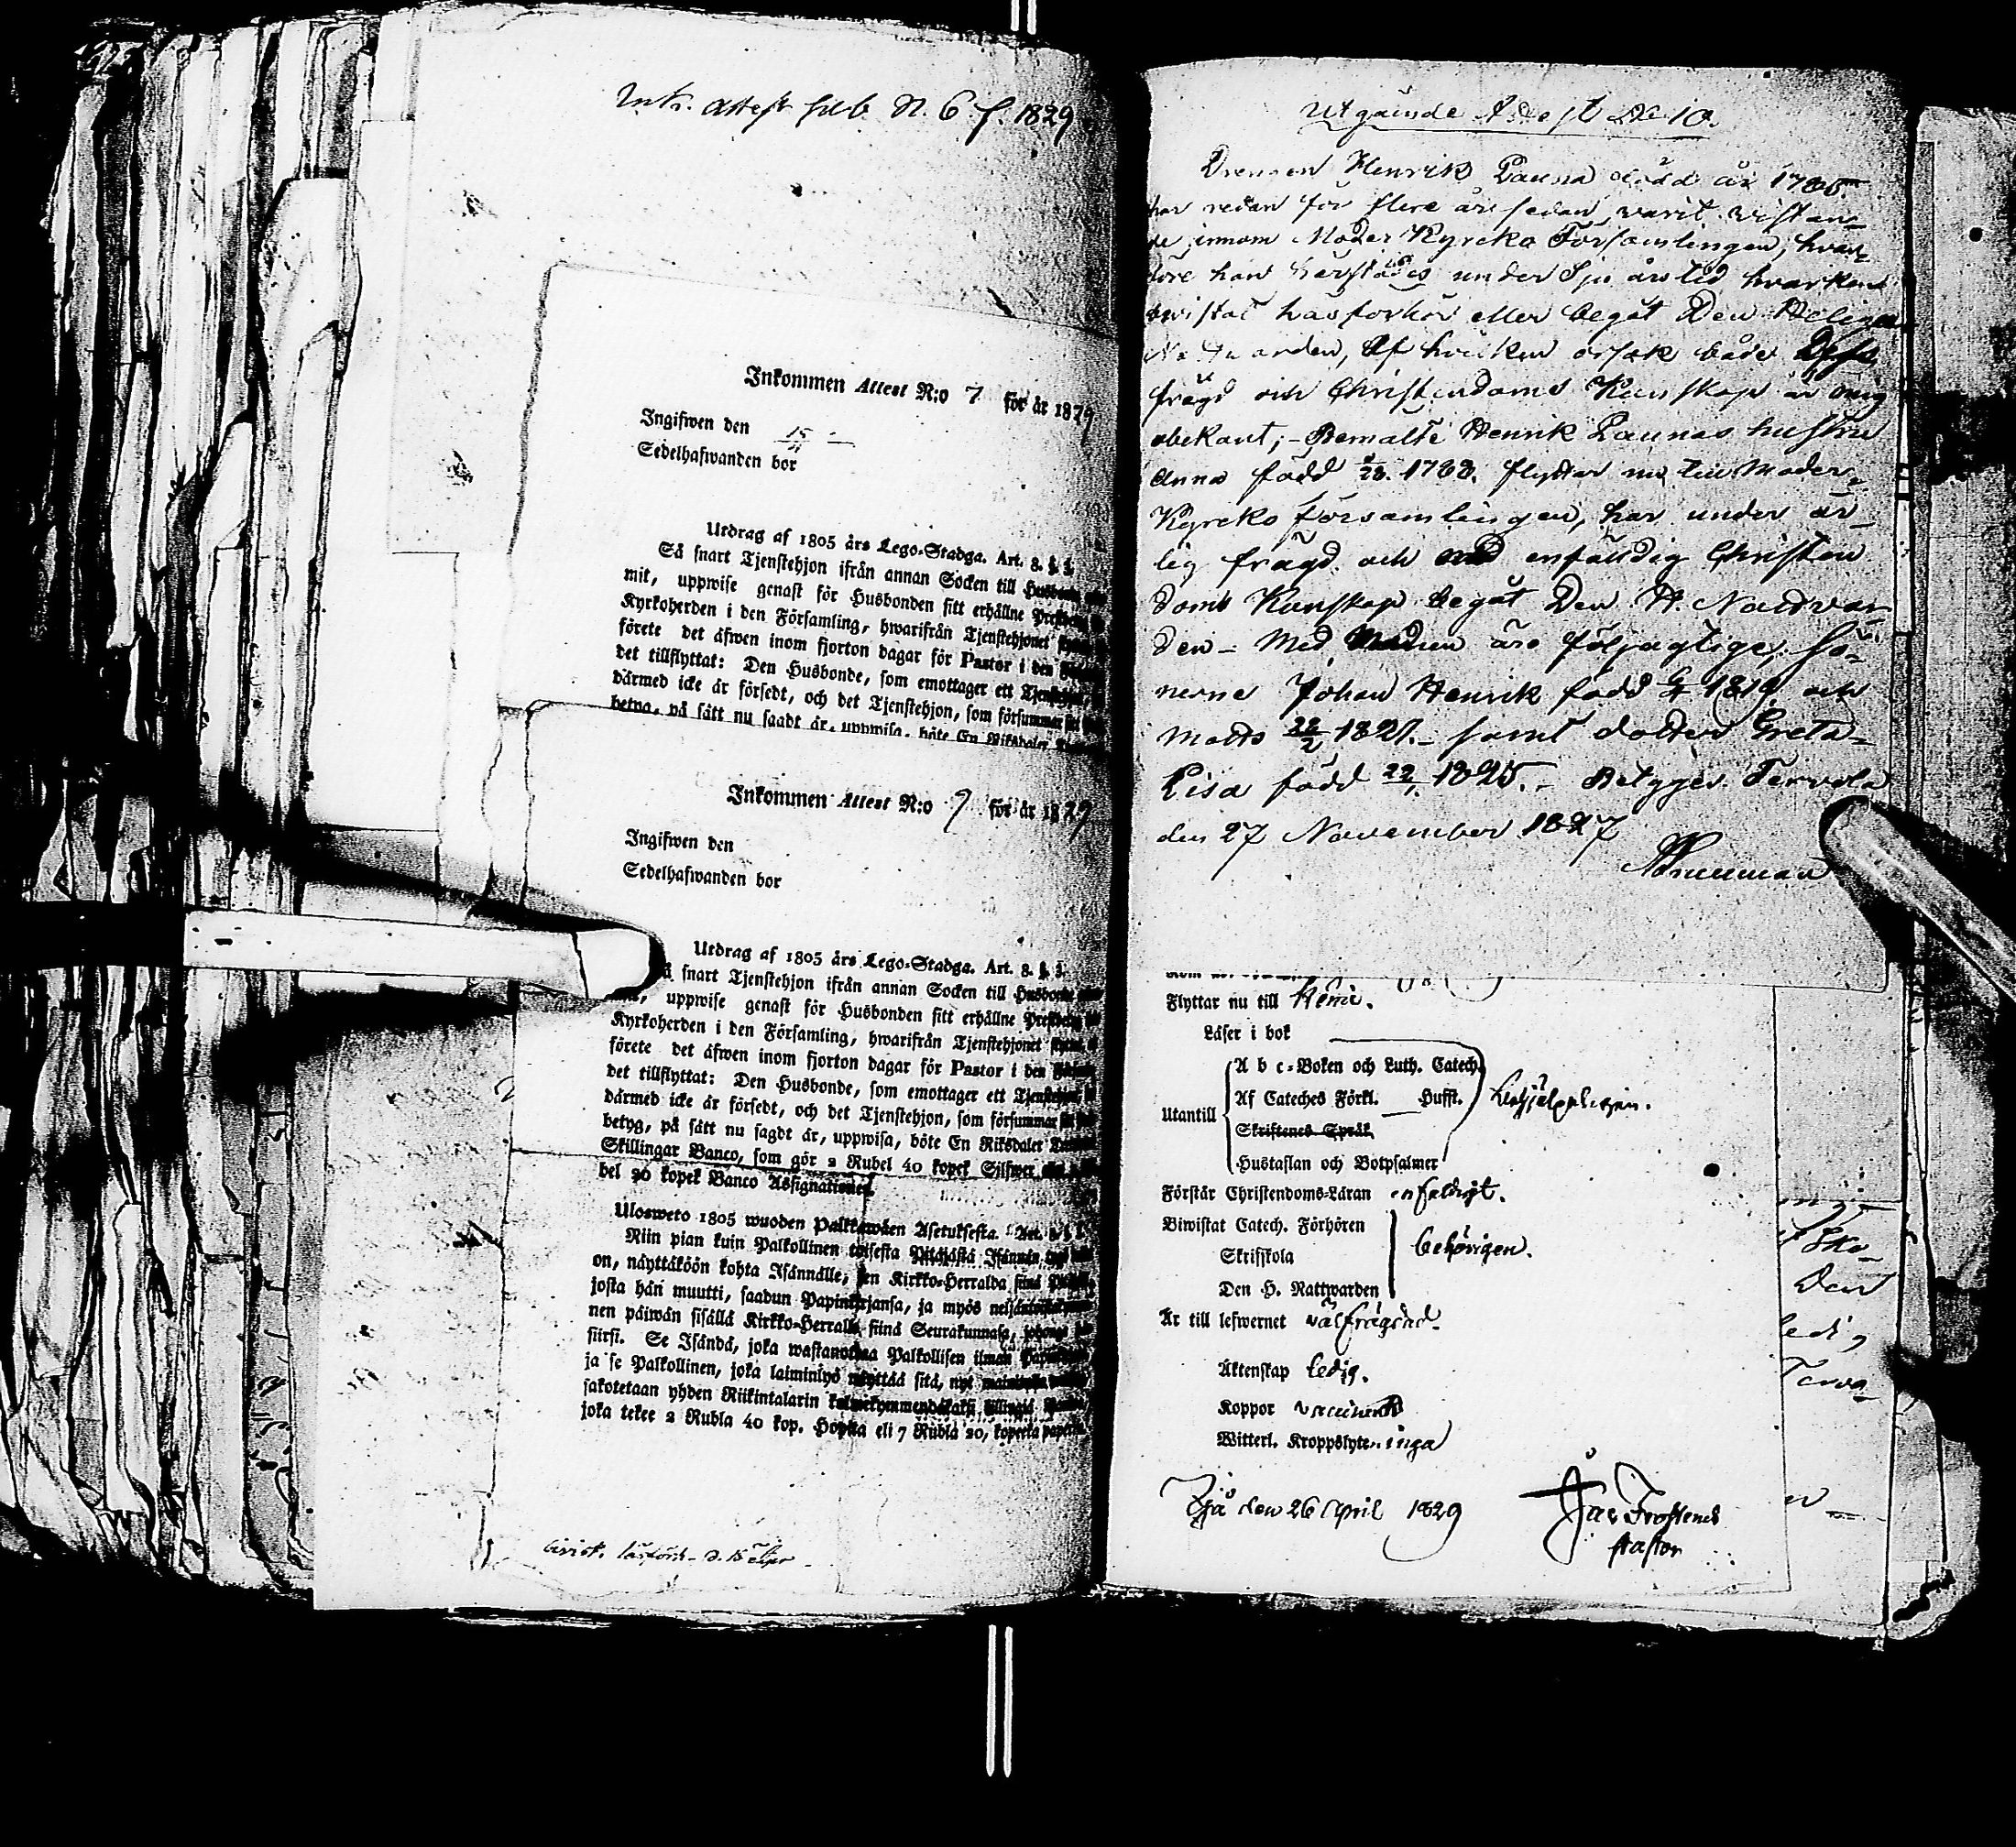 Ink. attest sub N. 6 f. 1829
Inkommen Attest N:o 7 för år 1829
Ingifwen den 15/11 -
Sedelhafwanden bor
Utdrag af 1805 års Lego-Stadga. Art. 8. §. 3.
Så snart Tjenstehjon ifrån annan Socken till Husbonde
mit, uppwise genast för Husbonden sitt erhållne
Kyrkoherden i den Församling, hwarifrån Tjenstehjonet
förete det äfwen inom fjorton dagar för Pastor i den
det tillflyttat: Den Husbonde, som emottager ett
därmed icke är försedt, och det Tjenstehjon, som försummar
betyg, på sätt nu sagdt är, uppwisa, böte En Riksdaler
Inkommen Attest N:o 9 för år 1829
Ingifwen den
Sedelhafwanden bor
Utdrag af 1805 års Lego-Stadga. Art. 8. §. 3.
snart Tjenstehjon ifrån annan Socken till
uppwise genast för Husbonden sitt erhållne
Kyrkoherden i den Församling, hwarifrån Tjenstehjonet
förete det äfwen inom fjorton dagar för Pastor i den
det tillflyttat: Den Husbonde, som emottager ett
därmed icke är försedt, och det Tjenstehjon, som försummar
betyg, på sätt nu sagdt är, uppwisa, böte En Riksdaler
Skillingar Banco, som gör 2 Rubel 40 kopek Silfwer
bel 20 kopek Banco Assignationer.
Ulosweto 1805 wuoden Palkkawäen Asetuksesta. Art.
Niin pian kuin Palkollinen toisesta Pitäjästä Isännän
on, näyttäköön kohta Isännälle, sen Kirkko-Herralda siinä
josta hän muutti, saadun Papinkirjansa, ja myös
nen päiwän sisällä Kirkko-Herralle siinä Seurakunnasa, johonga
siirsi. Se Isändä, joka wastanottaa Palkollisen ilman
ja se Palkollinen, joka laiminlyö näyttää sitä, nyt
sakotetaan yhden Riikintalarin kolmekymmendäkaksi killingiä
joka tekee 2 Rubla 40 kop. Hopeta eli 7 Rubla 20, kopeeka
bevist. läsförh. d.
Utgående Attest No 10.
Drengen Henrik Launa född år 1785
har redan för flere år sedan varit vistan-
de innom Moder Kyrcko Församlingen, hvar-
före han härstädes under Sju års tid hvarken
bevistat husförhör eller begåt Den Heliga
Nattvarden, Af hvilken orsak både Dess
frägd och Christendoms Kunskap är mig
obekant; - Bemälte Henrik Launas hustru
Anna född 1788. flyttar nu till Moder-
Kyrcko församlingen, har under är-
lig frägd och enfäldig Christen
doms Kunskap begåt Den H. Nattvar-
den - Med Modren äro följagtige, Sö-
nerne Johan Henrik född 1819 och
Matts 22/2 1821. - samt dotter Greta
Lisa född 22/1. 1825. - Betyges Tervola
den 27 November 1827
Flyttar nu till Kemi.
Läser i bok
A b c-Boken och Luth. Catech.
Af Cateches Förkl. Hufst.
Utantill
Skriftenes Språk
Hustaflan och Botpsalmer
Förstår Christendoms-Läran enfaldigt.
Biwistat Catech. Förhören
Skriftskola behörigen.
Den H. Nattwarden
Är till lefwernet välfrägdad.
Äktenskap ledig.
Koppor vaccinerad
Witterl. Kroppslyte inga
Ijå den 26 April 1829
Jac Frosterus
Pastor
Den
ledig
Terva-